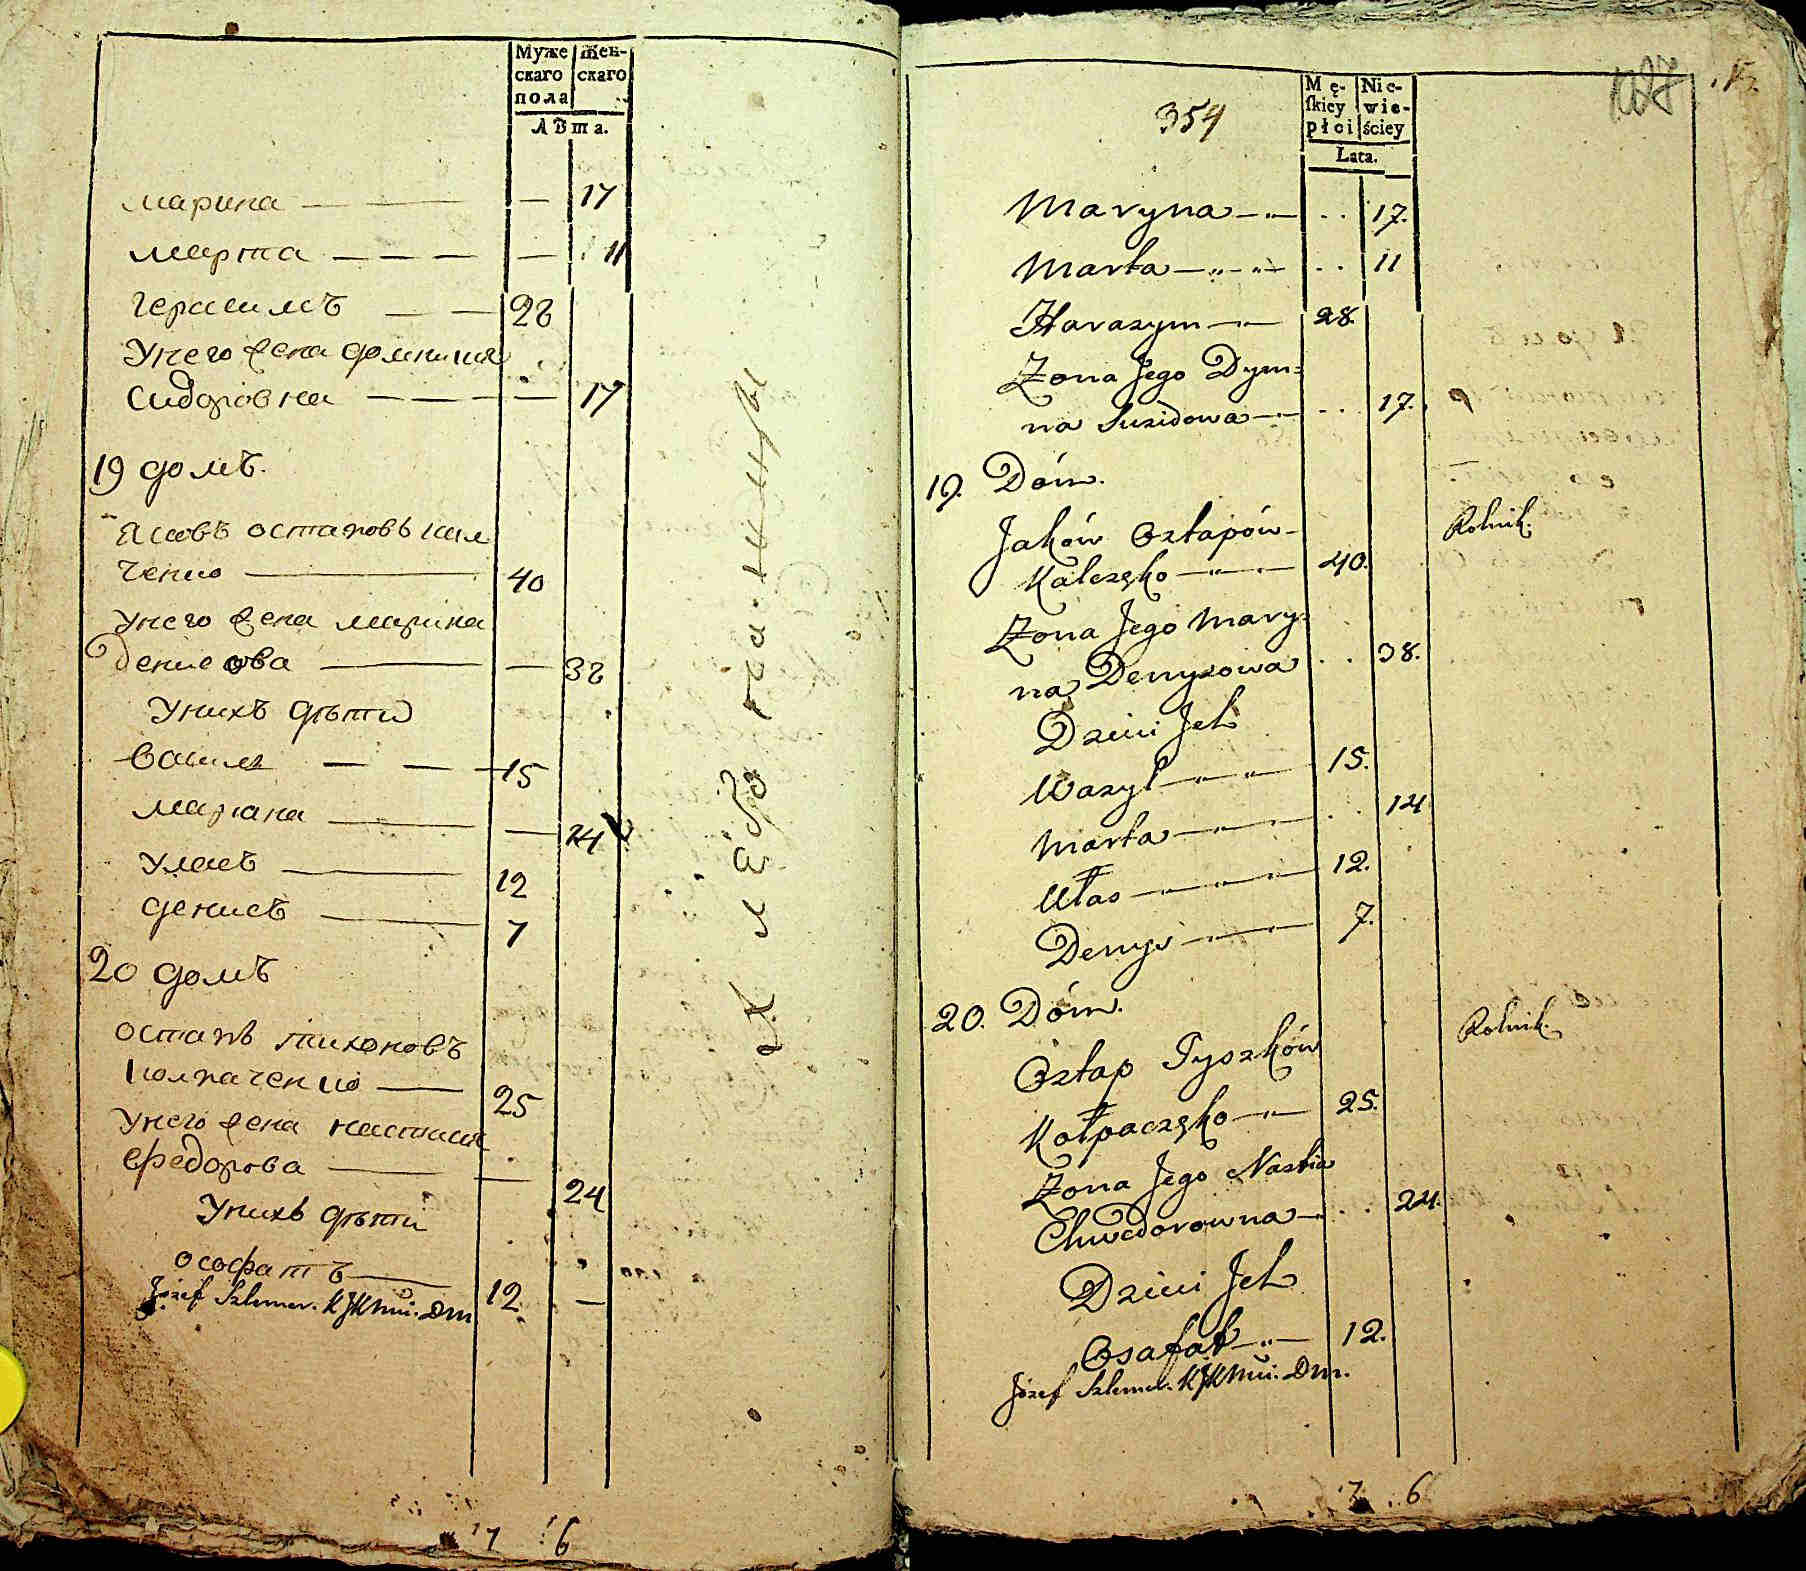 Муже
скаго
пола
Жен-
скаго
лѣта.
марина — — — 17
марта — — — — 11
герасимъ — — 28
Унего жена домникия
сидоровна — — — — 17
19 домъ.
Яковъ остаповъ кал
ченко — 40
Унего жена марина
денисова — — 38
Унихъ дѣти
василь — — — 15
мариана — — 14
Уласъ — 12
денисъ — 7
20 домъ
остапъ тихоновъ
колпаченко — 25
Унего жена настасия
федорова — — 24
Унихъ дѣти
ософатъ — 12 —
Józef Szlemer. KJKMci. Dm
17 16
Хлѣбопашци
354
Mę-
skiey
płci
Nie-
wie-
ściey
Lata.
127
Maryna — „ — . . 17.
Marta — „ — „ — . . 11
Harasym — „ — 28.
Zona Jego Dym=
na Suzidowa — „ — . . 17.
19. Dóm.
Jaków Ostapów- Rolnik.
Kalczęko — „ — 40.
Zona Jego Mary=
na Denysowa . . 38.
Dzieci Jch
Wasyl — „ — „ — 15.
Marta — „ — „ — . . 14
Ułas — „ — „ — 12.
Denys — „ — „ — 7.
20. Dóm. Rolnik.
Ostap Tyszków
Kołpaczęko — „ — 25.
Zona Jego Nastia
Chwedorowna — . . 24.
Dzieci Jch
Osafat — „ — 12.
Józef Szlemer. KJKMci. Dm.
7 6